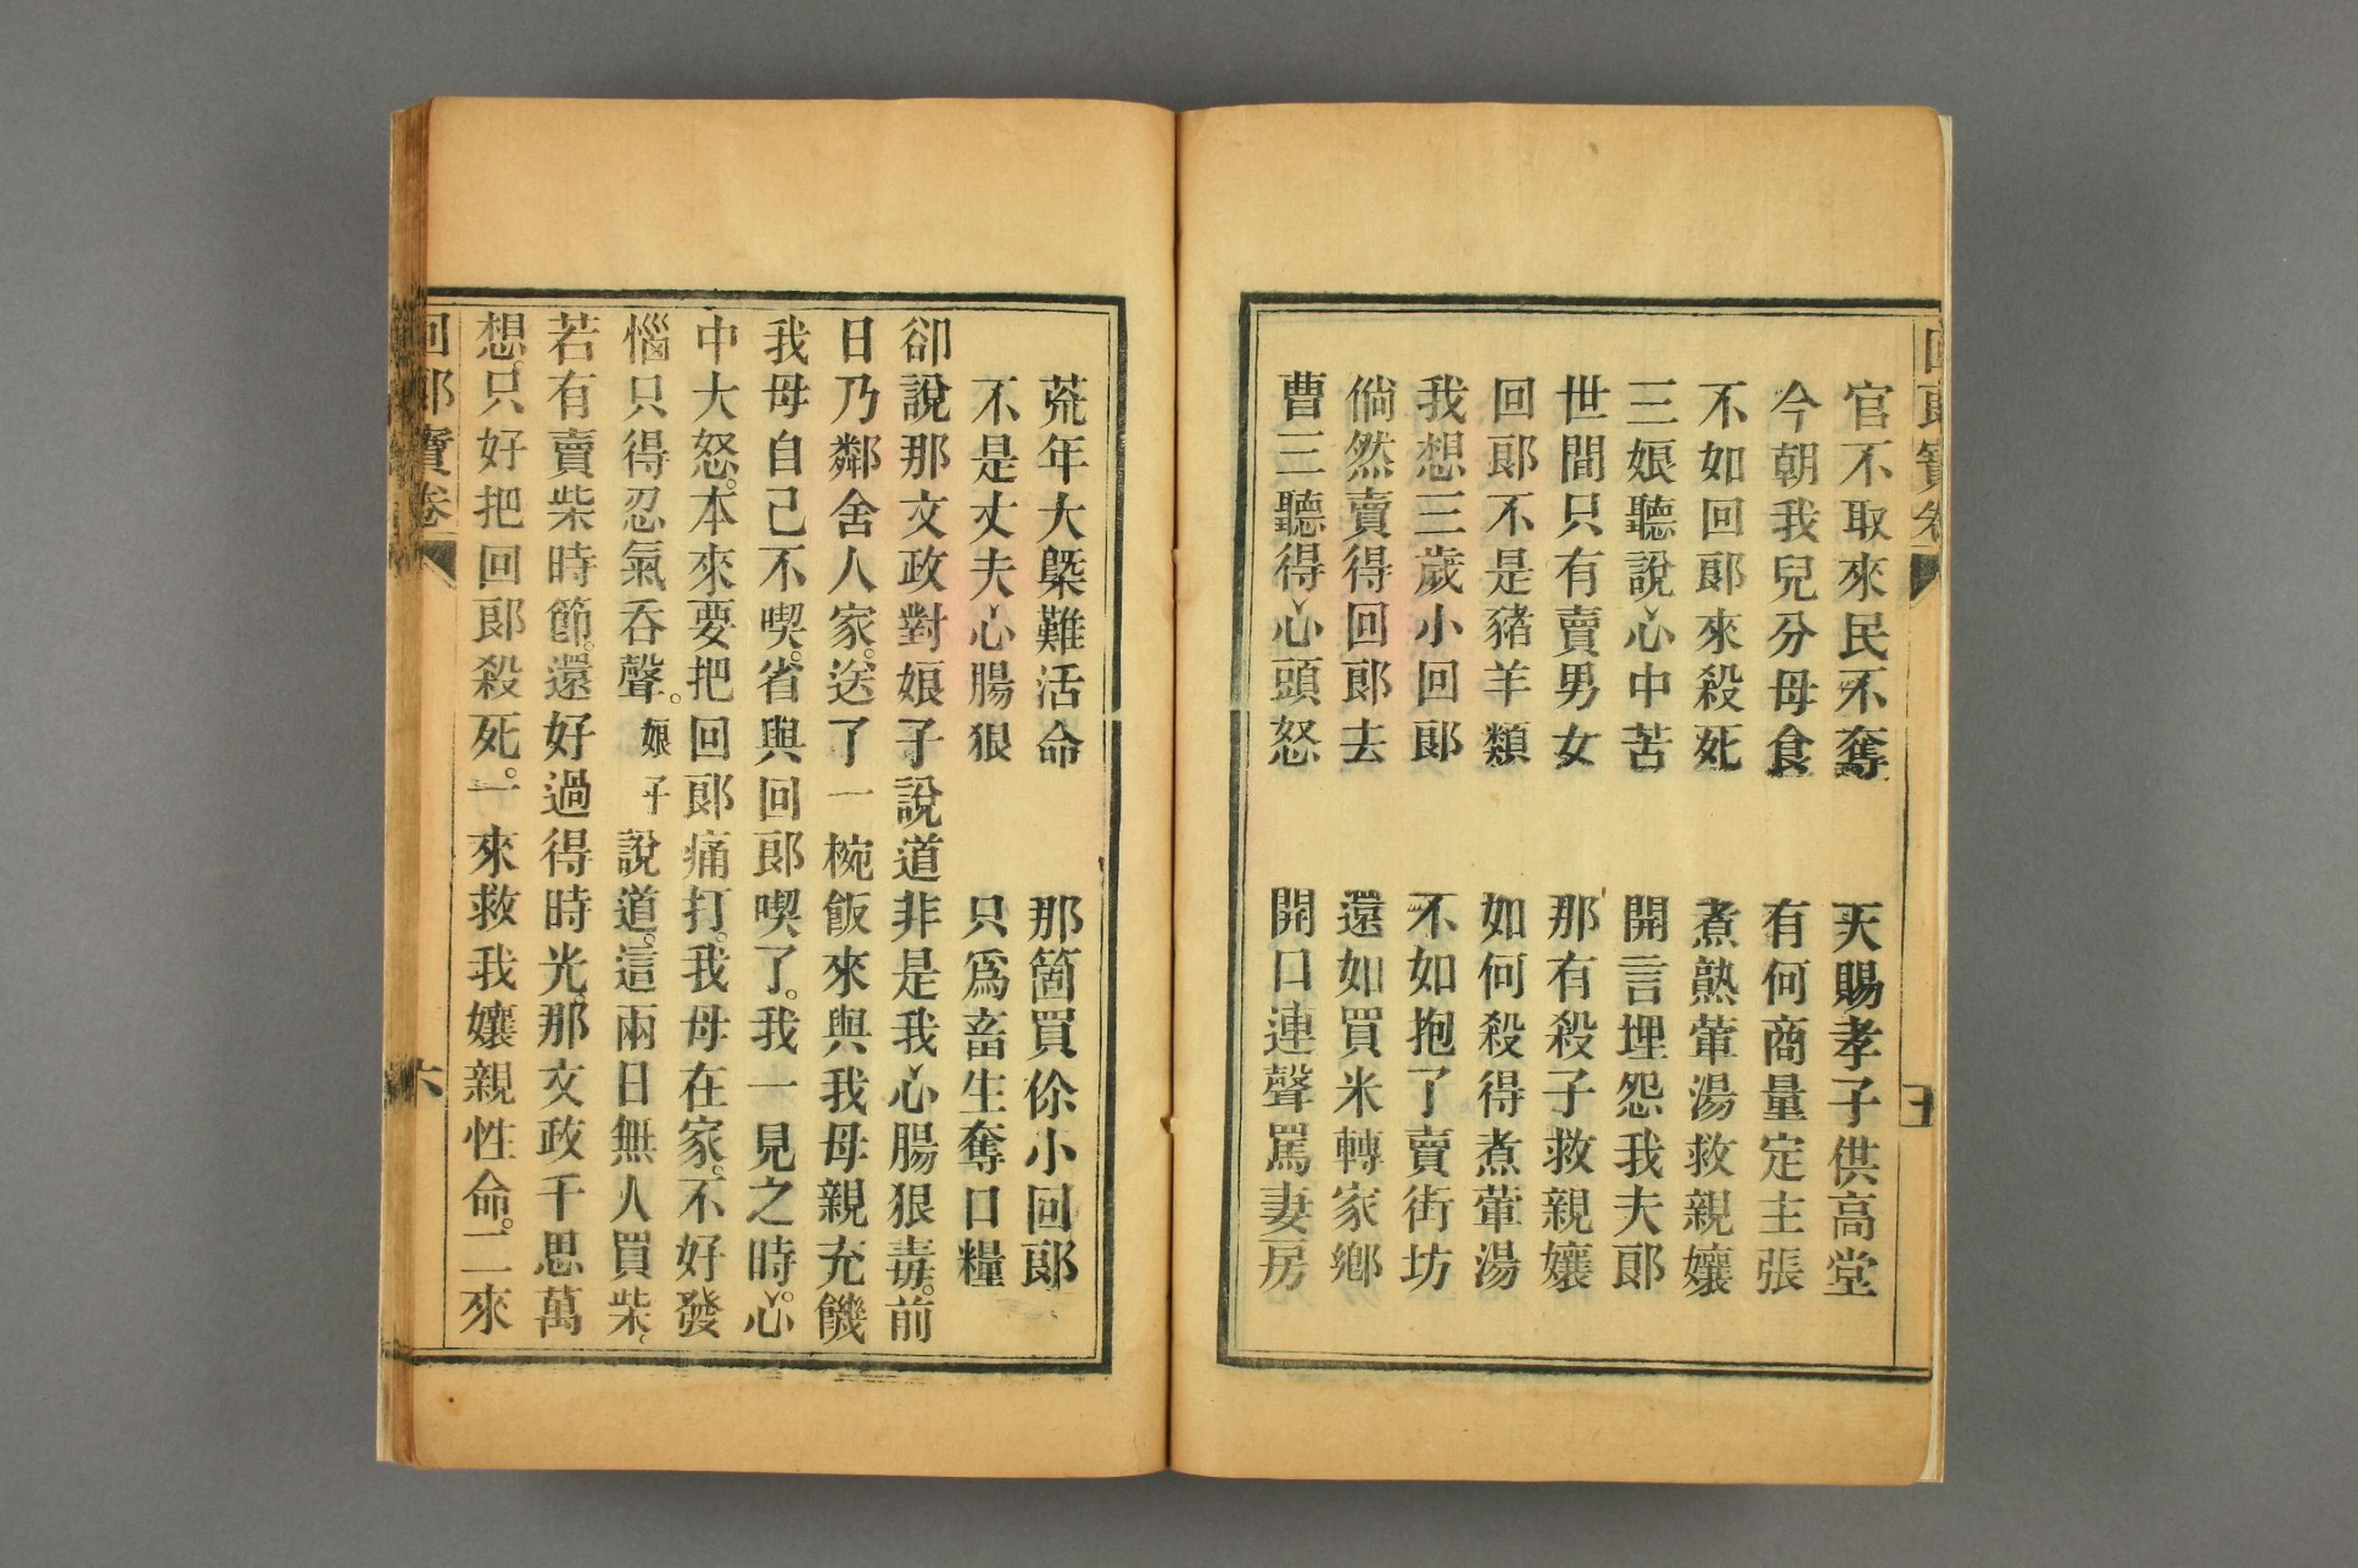 回郎寶卷
五
官不取來民不奪　天賜孝子供高堂
今朝我兒分母食　有何商量定主張
不如回郎來殺死　煮熟葷湯救親孃
三娘聽說心中苦　開言埋怨我夫郎
世間只有賣男女　那有殺子救親孃
回郎不是豬羊類　如何殺得煮葷湯
我想三歲小回郎　不如抱了賣街坊
倘然賣得回郎去　還如買米轉家鄉
曹三聽得心頭怒　開口連聲罵妻房
荒年大槩難活命　那箇買伱小回郎
不是丈夫心腸狠　只爲畜生奪口糧
卻說那文政對娘子說道非是我心腸狠毒。前
日乃鄰舍人家。送了一椀飯來與我母親充饑
我母自己不喫。省與回郎喫了。我一見之時。心
中大怒。本來要把回郎痛打。我母在家。不好發
惱只得忍氣吞聲。娘子說道。這兩日無人買柴。
若有賣柴時節。還好過得時光。那文政千思萬
想。只好把回郎殺死。一來救我孃親性命。二來
回郎寶卷
六